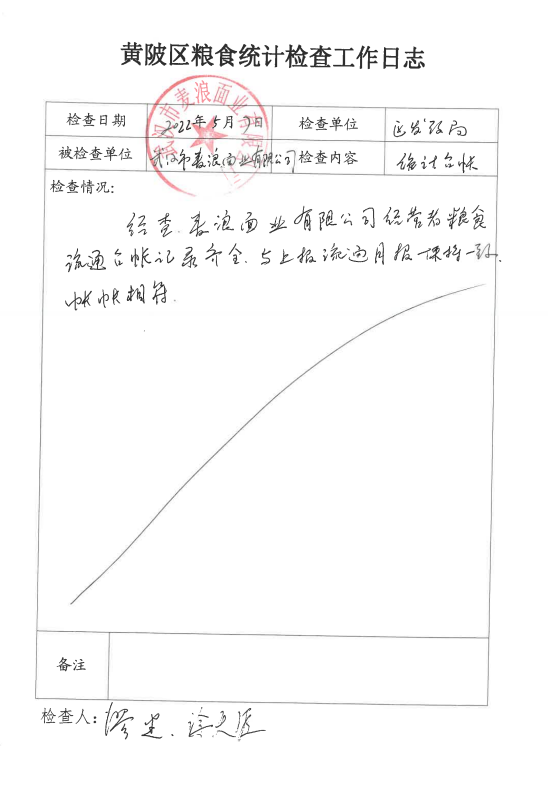 黄陂区粮食统计检查工作日志
武汉市麦浪面业有限公司
检查日期 2022年5月9日 检查单位 区发改局
被检查单位 武汉市麦浪面业有限公司 检查内容 统计台帐
检查情况：
经查，麦浪面业有限公司经营者粮食
流通台帐记录齐全，与上报流通月报一保持一致，
帐帐相符．
备注
检查人：